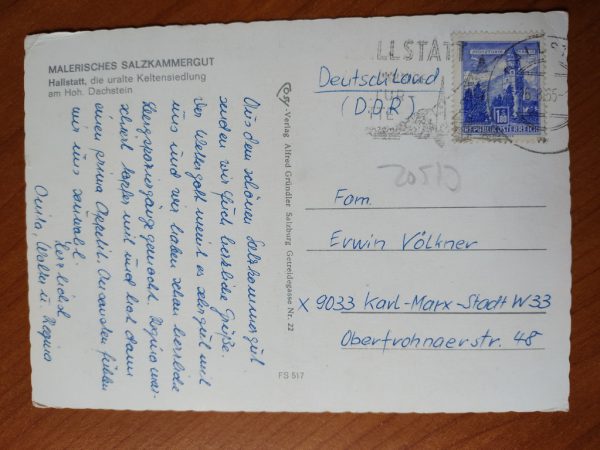 MALERISCHES SALZKAMMERGUT
Hallstatt, die uralte Keltensiedlung
am Hoh. Dachstein
Aus dem schönen Salzkammergut
senden wir Euch herzliche Grüße.
Der Wettergott meint es sehr gut mit
uns und wir haben schon herrliche
Bergspaziergänge gemacht. Regina mar-
schiert tapfer mit und hat dann
einen prima Appetit. Ansonsten fühlen
wir uns sauwohl.
Herzlichst
Anita, Walter u. Regina
Cosy-Verlag Alfred Gründler Salzburg Getreidegasse Nr. 22
FS 517
LLSTATT
REPUBLIK ÖSTERREICH
Deutschland
(DDR)
Fam.
Erwin Völkner
x 9033 Karl-Marx-Stadt W33
Oberfrohnaerstr. 48